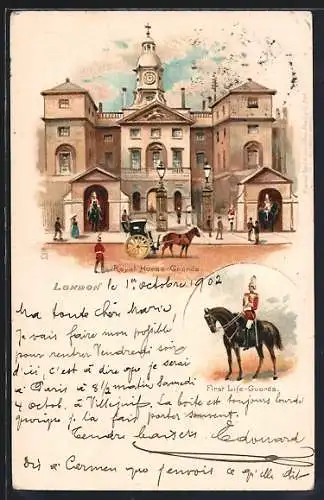 Royal Horse-Guards
LONDON le 1er octobre 1902
First Life-Guards.
Ma toute chère Marie,
Je vais faire mon possible
pour rentrer Vendredi soir
d'ici, c'est à dire que je serai
à Paris à 8½ matin Samedi
4 octob. à Villejuif. La boîte est toujours lourde
quoique je la fais porter souvent.
Tendres baisers. Edouard
Dis à Carmen que j'envoie ce qu'elle dit